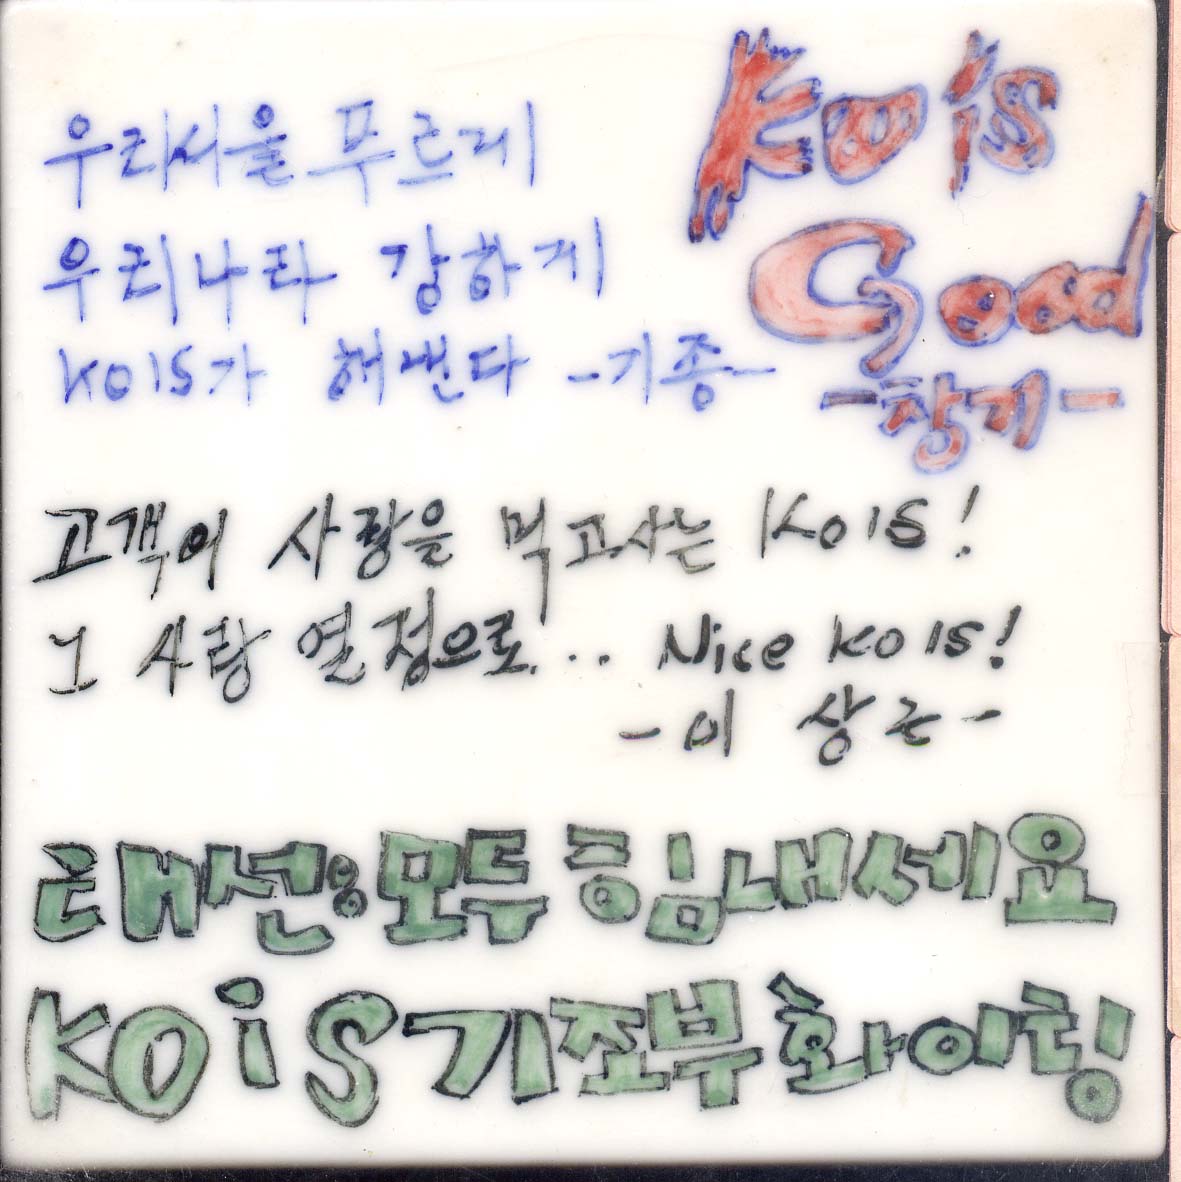 우리서울 푸르게
우리나라 강하게
KOIS가 해낸다 -기종-
Kois
Good
-창기-
고객의 사랑을 먹고사는 KOIS!
그 사랑 열정으로... Nice KOIS!
-이 상근-
태선: 모두 힘내세요
KOiS 기조부 화이팅!